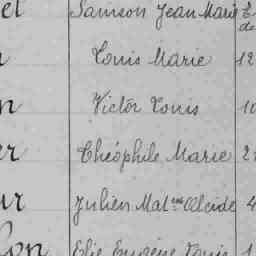 el Samson Jean Marie
Louis Marie 12
n Victor Louis 10
er Théophile Marie 2
ur Julien Mat. Alcide 4
lon Elie Eugène Louis 1